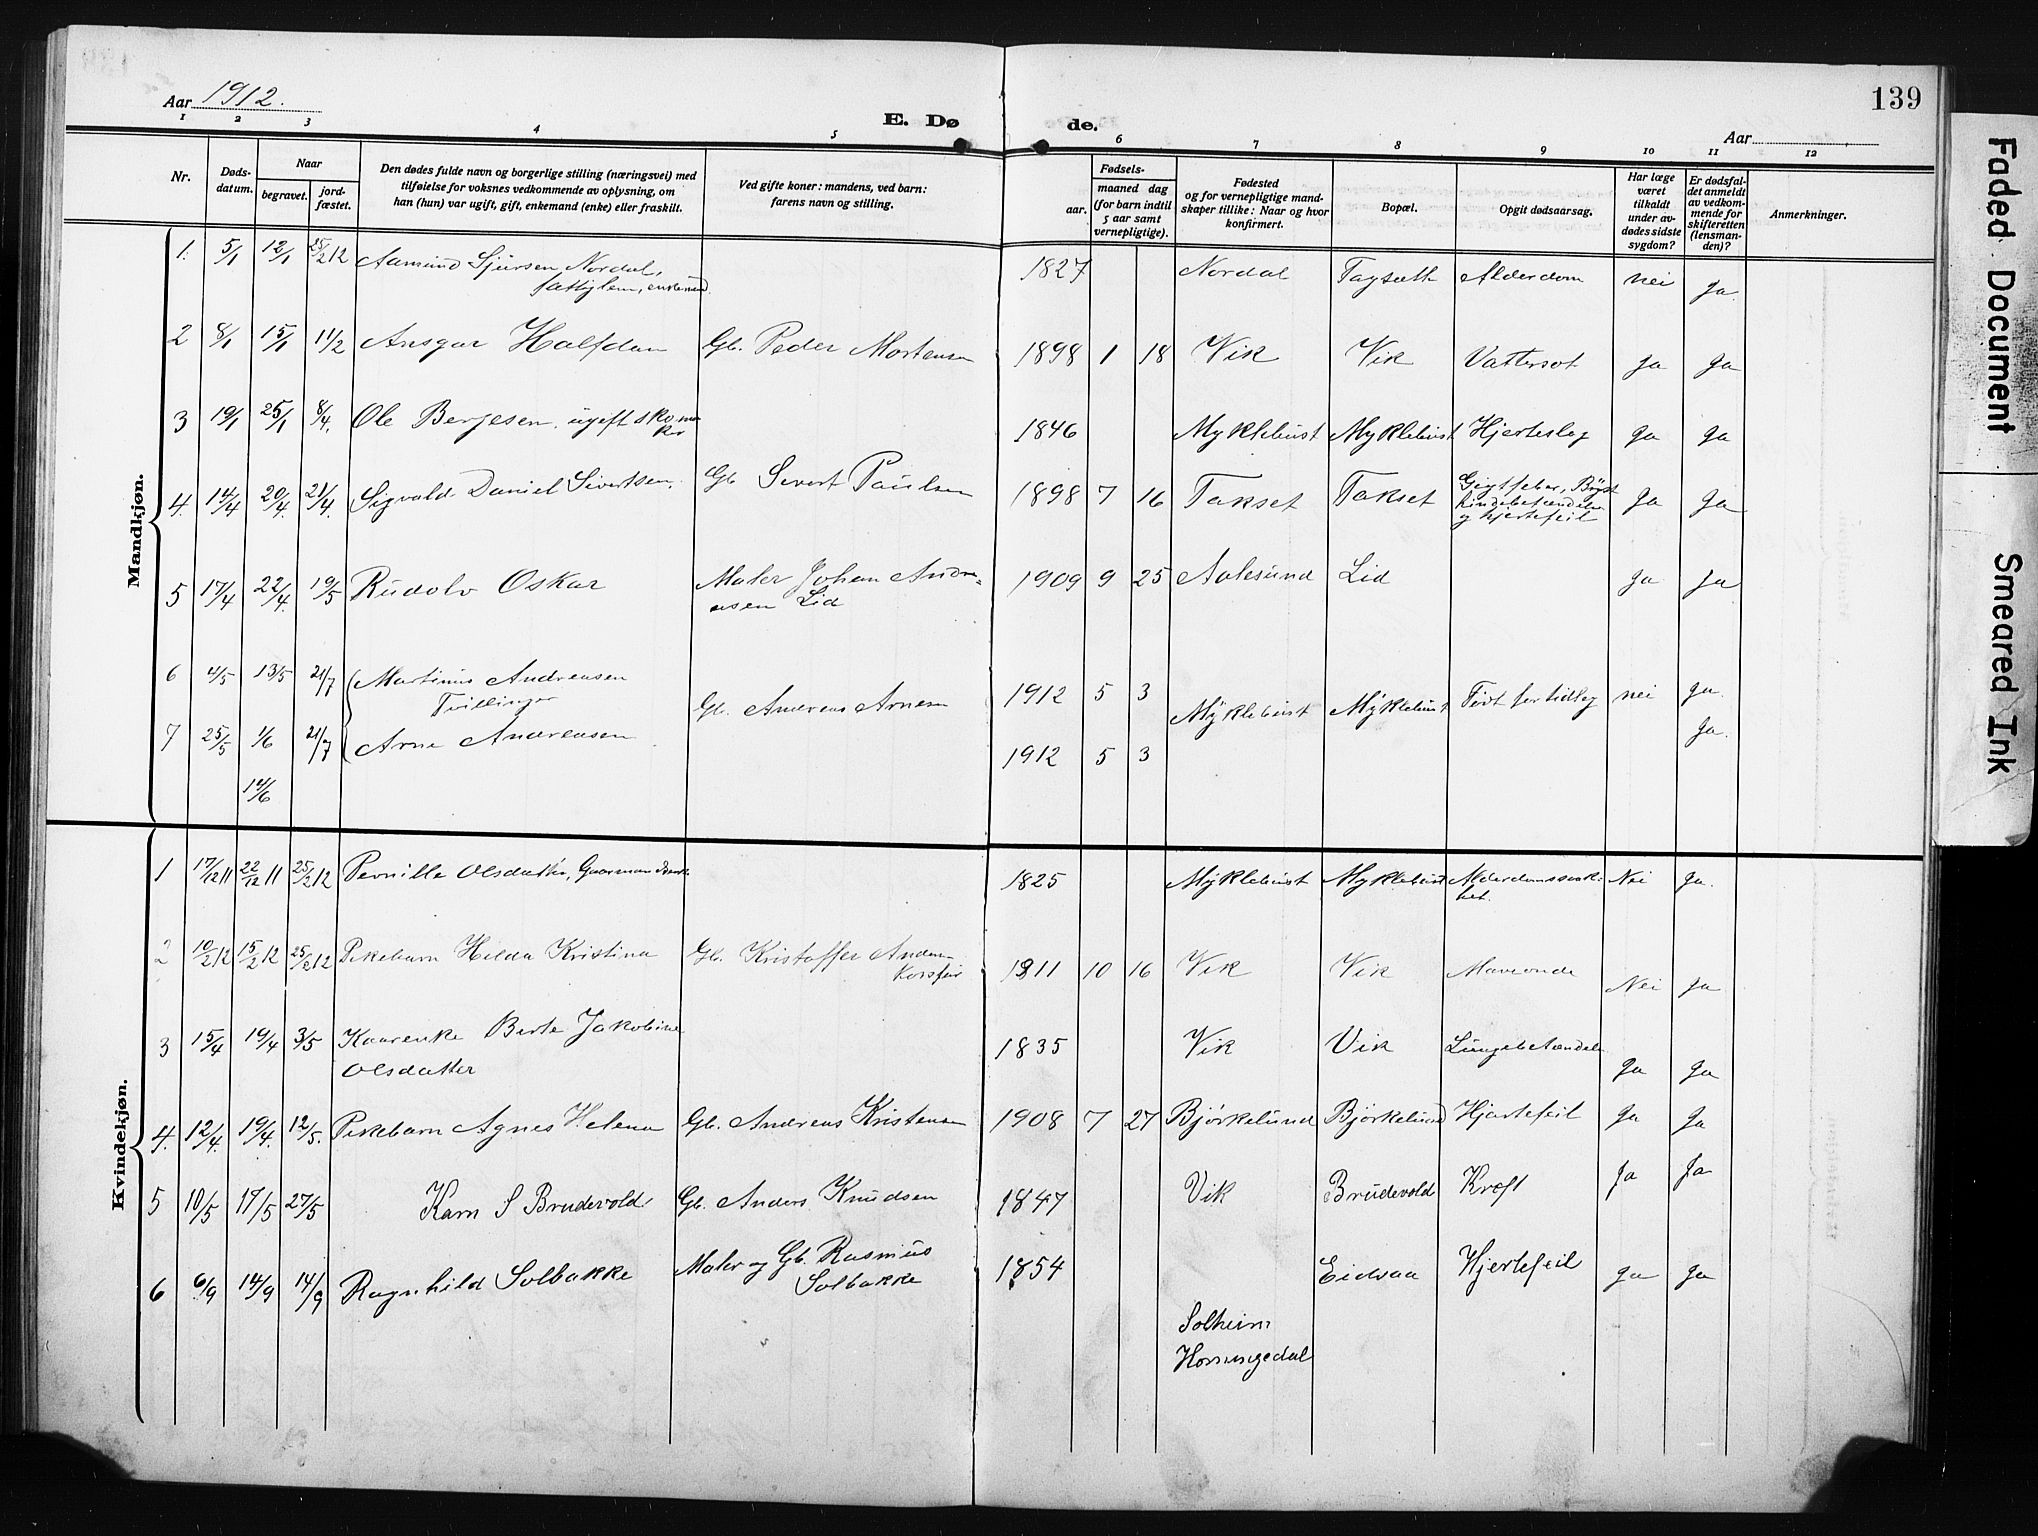 Aar 1912.
E. Døde.
Aar
139
1 2 3 4 5 6 7 8 9 10 11 12
Nr.
Dødsdatum.
Naar
begravet.
jordfæstet.
Den dødes fulde navn og borgerlige stilling (næringsvei) med
tilføielse for voksnes vedkommende av oplysning, om
han (hun) var ugift, gift, enkemand (enke) eller fraskilt.
Ved gifte koner: mandens, ved barn:
farens navn og stilling.
Fødsels-
aar.
maaned dag
(for barn indtil
5 aar samt
vernepligtige).
Fødested
og for vernepligtige mand-
skaper tillike: Naar og hvor
konfirmert.
Bopæl.
Opgit dødsaarsag.
Har læge
været
tilkaldt
under av-
dødes sidste
sygdom?
Er dødsfal-
det anmeldt
av vedkom-
mende for
skifteretten
(lensman-
den)?
Anmerkninger.
Mandkjøn.
1. 5/1 12/1 25/2 12 Aamund Sjursen Nordal, 1827 Nordal Tagsæth Alderdom nei Ja.
fattiglem, enkemand.
2 8/1 15/1 11/2 Ansgar Halfdan Gb. Peder Mortensen 1898 1 18 Vik Vik Vattersot Ja Ja
3 19/1 25/1 8/4. Ole Berjesen. ugift skomaker 1846 Myklebust Myklebust Hjerteslag Ja Ja
4. 14/4 20/4. 21/4. Sigvald Daniel Sivertsen. Gb Severt Paulsen 1898 7 16 Takset Takset Gigtfeber, Bryst
hindebetændelse
og hjertefeil Ja Ja
5 17/4 22/4. 19/5 Rudolv Oskar Maler Johan Andre-
asen Lid 1909 9 25 Aalesund Lid Ja Ja
6 4/5 13/5 21/7 Martinus Andreasen Gb. Andreas Arnesen 1912 5 3 Myklebust Myklebust Født for tidleg nei Ja.
Tvillinger
7 25/5 1/6 21/7 Arne Andreasen 1912 5 3 Ja.
14/6
Kvindekjøn.
1 17/12 11 22/12 11 25/2 12 Pernille Olsdatter, 1825 Myklebust Myklebust Alderdomssvak-
het. Nei Ja.
2 10/2 12 15/2 12 25/2 12 Pikebarn Hilda Kristina Gb. Kristoffer Anders-
Korsfur 1911 10 16 Vik Vik Maveonde Nei Ja
3 15/4 19/4 3/5 Kaarenke Berte Jakobine
Olsdatter 1835 Vik Vik Lungebetændelse Ja Ja
4. 12/4. 19/4. 12/5. Pikebarn Agnes Helena Gb. Andreas Kristensen 1908 7 27 Bjørkelund Bjørkelund Hjertefeil Ja Ja
5 10/5 17/5 27/5 Karn S Brudevold Gb. Anders Knudsen 1847 Vik Brudevold Kræft Ja Ja
6 6/9 14/9 14/9 Ragnhild Solbakke Maler og Gb. Rasmus
Solbakke 1854 Eidsaa Hjertefeil Ja Ja
Solheim
Horningedal
Faded Document
Smeared Ink